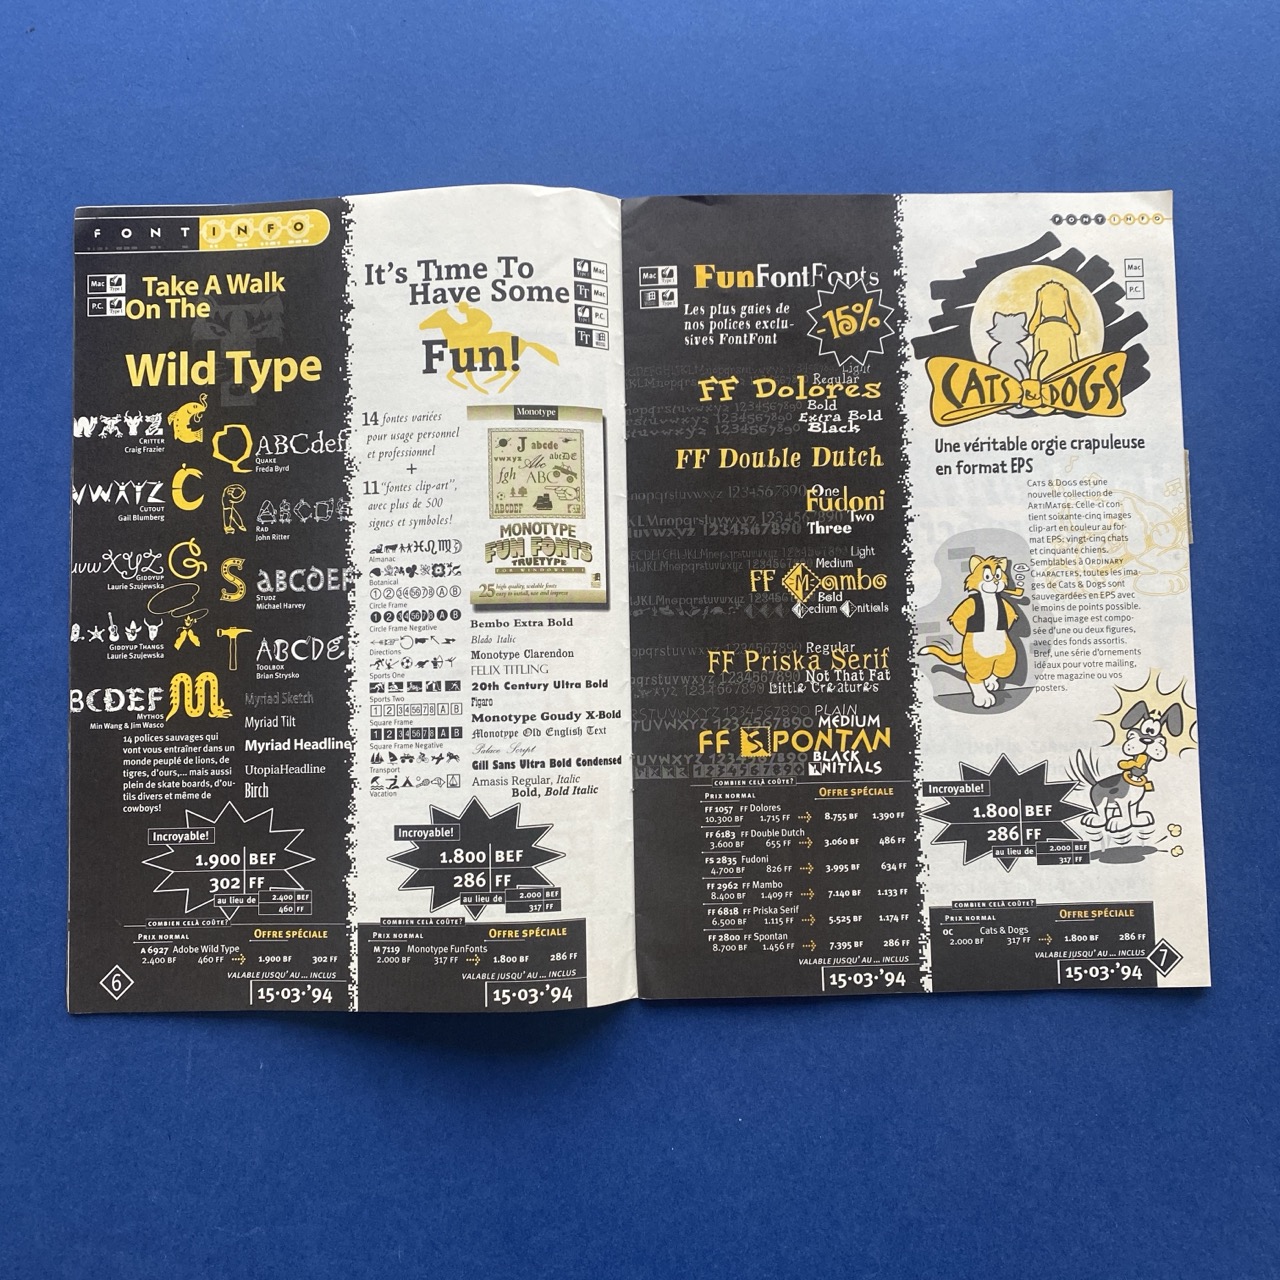 FONT INFO
Mac
Type 1
P.C.
Type 1
Take A Walk
On The
Wild Type
WXYZ
CRITTER
Craig Frazier
Q ABCdef
QUAKE
Freda Byrd
VWXYZ C
CUTOUT
Gail Blumberg
RAD
John Ritter
uvwxyz G
GIDDYUP
Laurie Szujewska
S aBCDEF
STUDZ
Michael Harvey
GIDDYUP THANGS
Laurie Szujewska
T ABCDE
TOOLBOX
Brian Strysko
BCDEF M
MYTHOS
Min Wang & Jim Wasco
Myriad Sketch
Myriad Tilt
Myriad Headline
UtopiaHeadline
Birch
14 polices sauvages qui
vont vous entraîner dans un
monde peuplé de lions, de
tigres, d'ours,... mais aussi
plein de skate boards, d'ou-
tils divers et même de
cowboys!
Incroyable!
1.900 BEF
302 FF
au lieu de 2.400 BEF
460 FF
COMBIEN CELÀ COÛTE?
PRIX NORMAL OFFRE SPÉCIALE
A 6927 Adobe Wild Type
2.400 BF 460 FF 1.900 BF 302 FF
VALABLE JUSQU' AU ... INCLUS
15·03·'94
6
It's Time To
Have Some
Fun!
Type 1 Mac
TT Mac
Type 1 P.C.
TT
14 fontes variées
pour usage personnel
et professionnel
+
11 "fontes clip-art",
avec plus de 500
signes et symboles!
Almanac
Botanical
1 2 3 4 5 6 7 8 A B
Circle Frame
1 2 3 4 5 6 7 8 A B
Circle Frame Negative
Directions
Sports One
Sports Two
1 2 3 4 5 6 7 8 A B
Square Frame
1 2 3 4 5 6 7 8 A B
Square Frame Negative
Transport
Vacation
Monotype
J abcde
vwxyz Abc abcDE
fgh ABC
ABCDEF
MONOTYPE
FUN FONTS
TRUETYPE
FOR WINDOWS 3.1
25 high-quality, scalable fonts
easy to install, use and impress
Bembo Extra Bold
Blado Italic
Monotype Clarendon
FELIX TITLING
20th Century Ultra Bold
Figaro
Monotype Goudy X-Bold
Monotype Old English Text
Palace Script
Gill Sans Ultra Bold Condensed
Amasis Regular, Italic
Bold, Bold Italic
Incroyable!
1.800 BEF
286 FF
au lieu de 2.000 BEF
317 FF
COMBIEN CELÀ COÛTE?
PRIX NORMAL OFFRE SPÉCIALE
M 7119 Monotype FunFonts
2.000 BF 317 FF 1.800 BF 286 FF
VALABLE JUSQU' AU ... INCLUS
15·03·'94
Mac
Type 1
Type 1
FunFontFonts
Les plus gaies de
nos polices exclu-
sives FontFont
-15%
Light
Regular
FF Dolores
Bold
Extra Bold
Black
FF Double Dutch
One
Fudoni
Two
Three
Light
Medium
FF Mambo
Bold
Medium Initials
Regular
FF Priska Serif
Not That Fat
Little Creatures
PLAIN
MEDIUM
FF SPONTAN
BLACK
INITIALS
COMBIEN CELÀ COÛTE?
PRIX NORMAL OFFRE SPÉCIALE
FF 1057 FF Dolores
10.300 BF 1.715 FF 8.755 BF 1.390 FF
FF 6183 FF Double Dutch
3.600 BF 655 FF 3.060 BF 486 FF
FS 2835 Fudoni
4.700 BF 826 FF 3.995 BF 634 FF
FF 2962 FF Mambo
8.400 BF 1.409 FF 7.140 BF 1.133 FF
FF 6818 FF Priska Serif
6.500 BF 1.115 FF 5.525 BF 1.174 FF
FF 2800 FF Spontan
8.700 BF 1.456 FF 7.395 BF 286 FF
VALABLE JUSQU' AU ... INCLUS
15·03·'94
FONT INFO
Mac
P.C.
CATS & DOGS
Une véritable orgie crapuleuse
en format EPS
CATS & DOGS est une
nouvelle collection de
ARTIMATGE. Celle-ci con-
tient soixante-cinq images
clip-art en couleur au for-
mat EPS: vingt-cinq chats
et cinquante chiens.
Semblables à ORDINARY
CHARACTERS, toutes les ima-
ges de Cats & Dogs sont
sauvegardées en EPS avec
le moins de points possible.
Chaque image est compo-
sée d'une ou deux figures,
avec des fonds assortis.
Bref, une série d'ornements
idéaux pour votre mailing,
votre magazine ou vos
posters.
Incroyable!
1.800 BEF
286 FF
au lieu de 2.000 BEF
317 FF
COMBIEN CELÀ COÛTE?
PRIX NORMAL OFFRE SPÉCIALE
OC Cats & Dogs
2.000 BF 317 FF 1.800 BF 286 FF
VALABLE JUSQU' AU ... INCLUS
15·03·'94
7